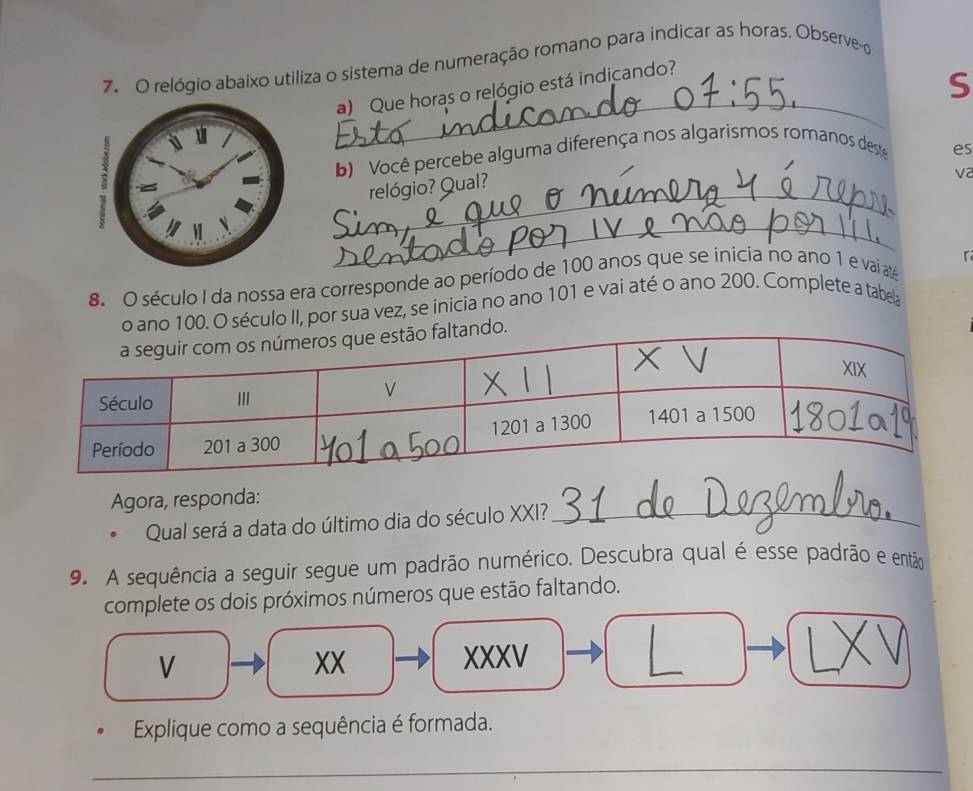 7. O relógio abaixo utiliza o sistema de numeração romano para indicar as horas. Observe-o
a) Que horas o relógio está indicando?
Está indicando 07:55.
b) Você percebe alguma diferença nos algarismos romanos deste
relógio? Qual?
Sim, e que o número 4 é repre
sentado por IV e não por IIII.
noraismail - stock.adobe.com
8. O século I da nossa era corresponde ao período de 100 anos que se inicia no ano 1 e vai até
o ano 100. O século II, por sua vez, se inicia no ano 101 e vai até o ano 200. Complete a tabela
a seguir com os números que estão faltando.
Século III V XII XV XIX
Período 201 a 300 401 a 500 1201 a 1300 1401 a 1500 1801 a 19
Agora, responda:
• Qual será a data do último dia do século XXI? 31 de Dezembro.
9. A sequência a seguir segue um padrão numérico. Descubra qual é esse padrão e então
complete os dois próximos números que estão faltando.
V XX XXXV L LXV
• Explique como a sequência é formada.
S
es
va